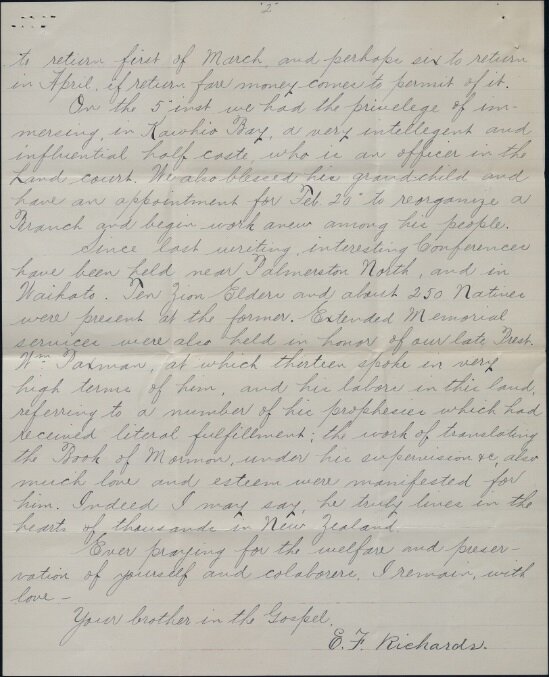 "2"
to return first of March, and perhaps six to return
in April, if return fare money comes to permit of it.
On the 5" inst we had the privelege of im-
mersing, in Kawhio Bay, a very intellegent and
influential half caste, who is an officer in the
Land court. We also blessed his grandchild and
have an appointment for Feb. 20" to reorganize a
Branch and begin work anew among his people.
Since last writing, interesting Conferences
have been held near Palmerston North, and in
Waikato. Ten Zion Elders and about 250 Natives
were present at the former. Extended Memorial
services were also held in honor of our late Prest.
Wm Paxman, at which thirteen spoke in very
high terms of him, and his labors in this land,
referring to a number of his prophesies which had
received literal fulfillment; the work of translating
the Book of Mormon, under his supervision &c, also
much love and esteem were manifested for
him. Indeed I may say, he truly lives in the
hearts of thousands in New Zealand.
Ever praying for the welfare and preser-
vation of yourself and colaborers, I remain, with
love –
Your brother in the Gospel,
E. F. Richards.